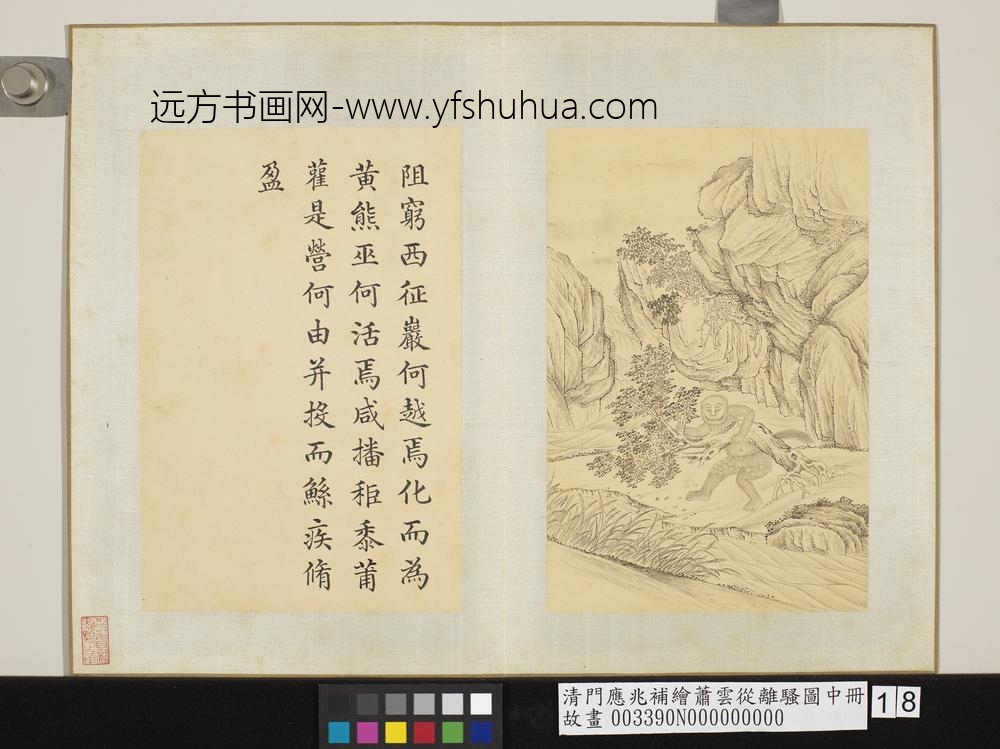 远方书画网-www.yfshuhua.com
阻窮西征巖何越焉化而為
黃熊巫何活焉咸播秬黍莆
雚是營何由并投而鯀疾脩
盈
清門應兆補繪蕭雲從離騷圖中冊
故畫 003390N000000000
18